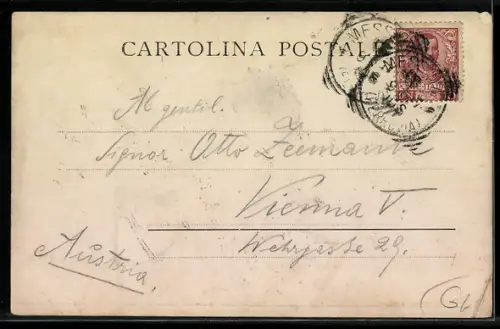 CARTOLINA POSTALE
MESSINA
Al gentil.
Signor Otto Zeemann
Vienna V.
Wehrgasse 29.
Austria.